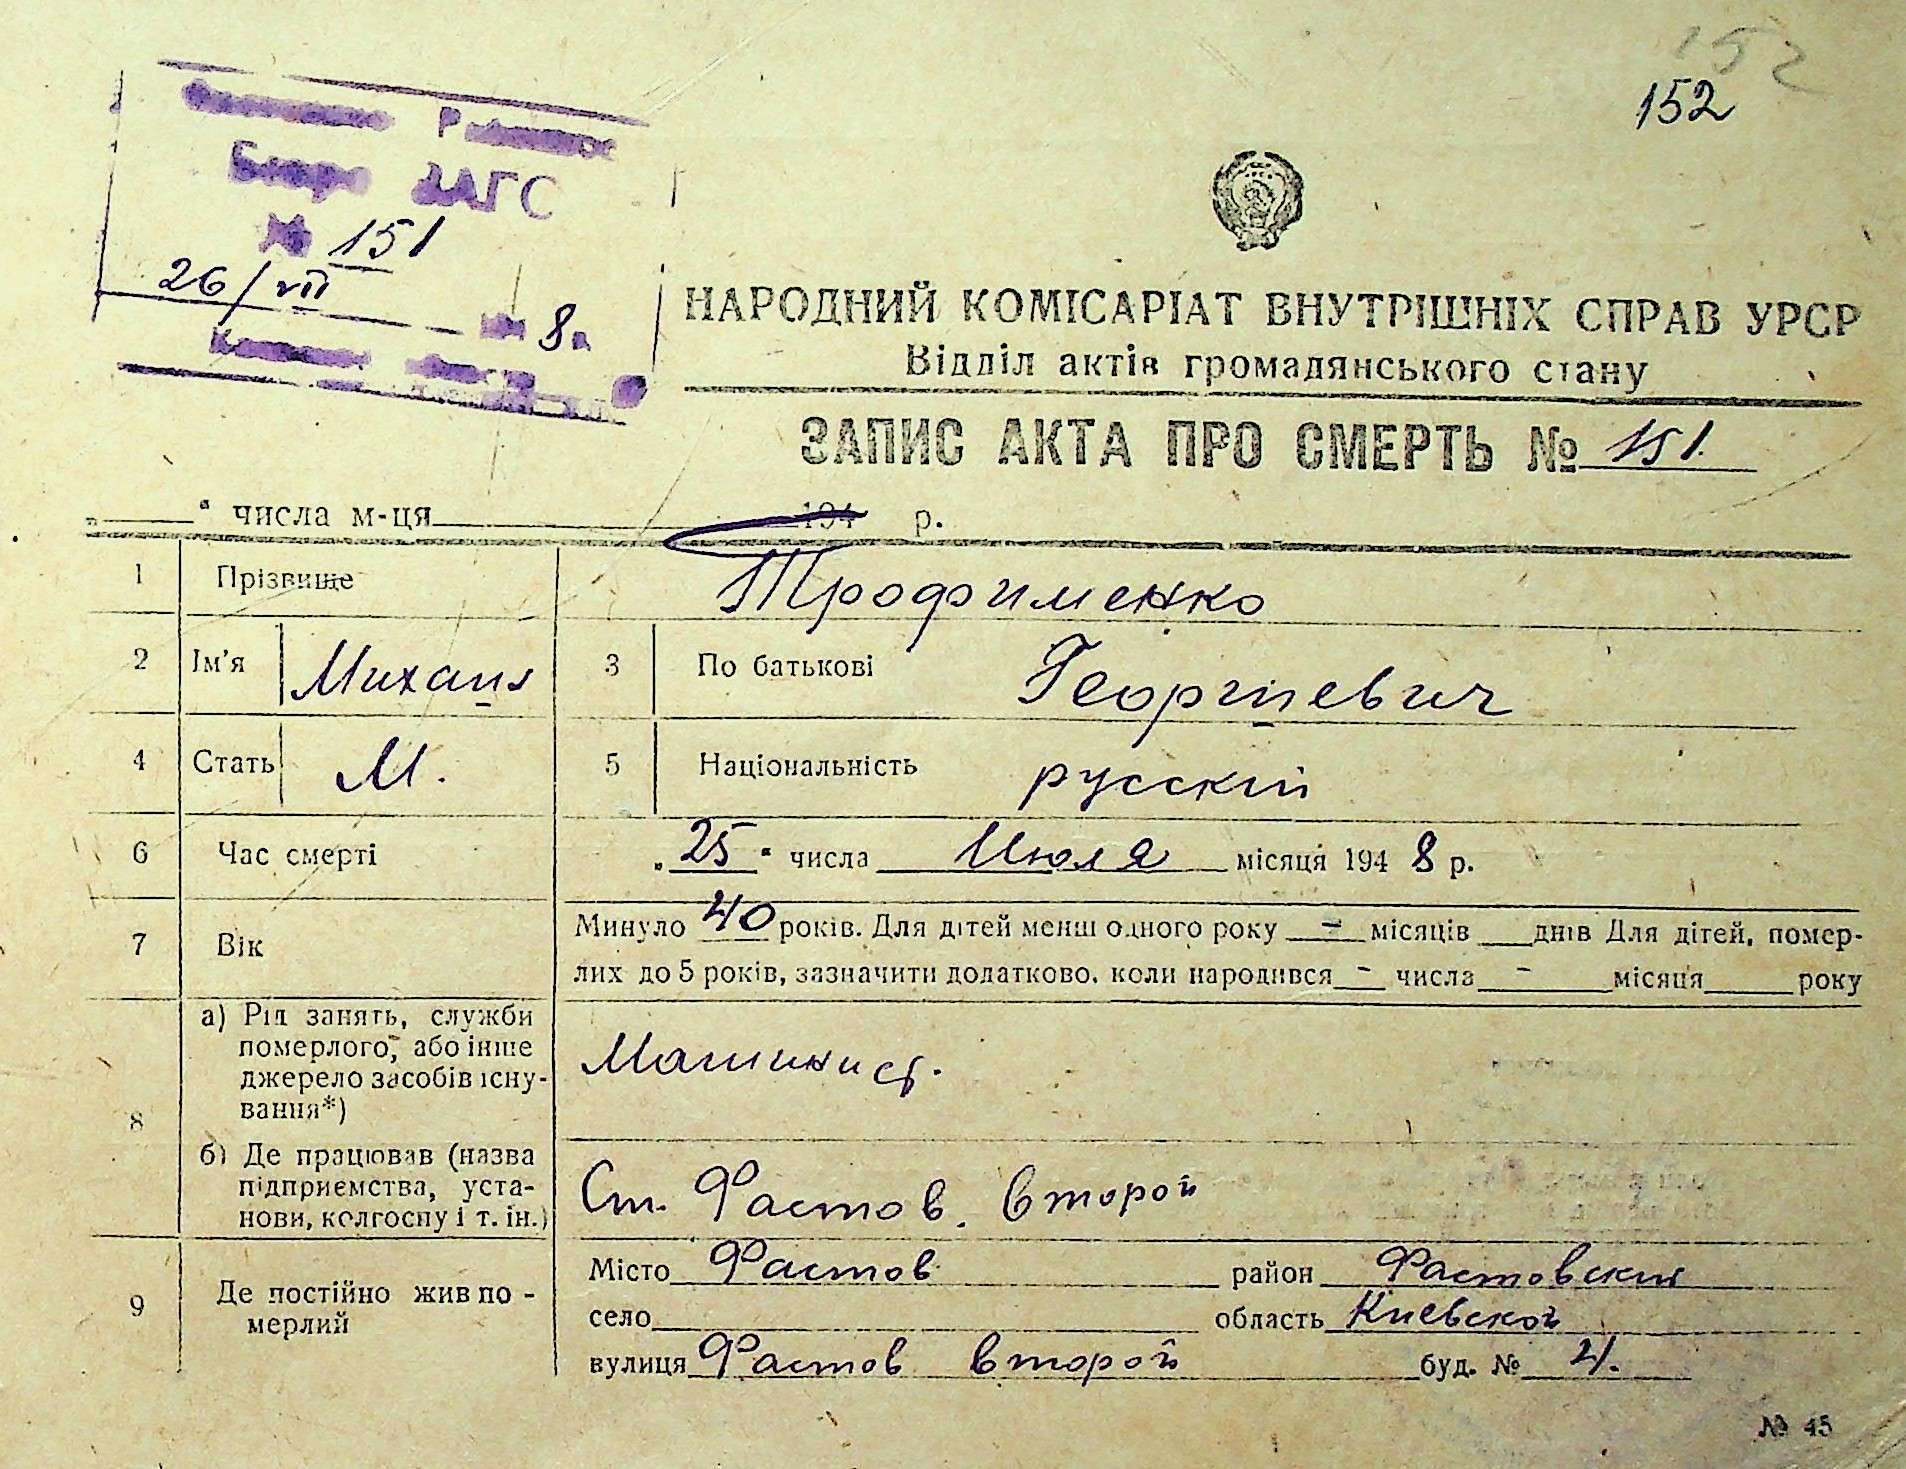 152
152
Бюро ЗАГС
№ 151
26/VII 8
НАРОДНИЙ КОМІСАРІАТ ВНУТРІШНІХ СПРАВ УРСР
Відділ актів громадянського стану
ЗАПИС АКТА ПРО СМЕРТЬ № 151.
„ “ числа м-ця 194 р.
1 Прізвище Трофименко
2 Ім’я Михаил 3 По батькові Георгиевич
4 Стать М. 5 Національність русский
6 Час смерті „25“ числа Июля місяця 1948 р.
7 Вік Минуло 40 років. Для дітей менш одного року - місяців днів Для дітей, помер-
лих до 5 років, зазначити додатково, коли народився - числа - місяця року
8 а) Рід занять, служби
померлого, або інше
джерело засобів існу-
вання*) Машинист.
б) Де працював (назва
підприємства, уста-
нови, колгоспу і т. ін.) Ст. Фастов. Второй
9 Де постійно жив по-
мерлий
Місто Фастов район Фастовский
село область Киевской
вулиця Фастов второй буд. № 4.
№ 45